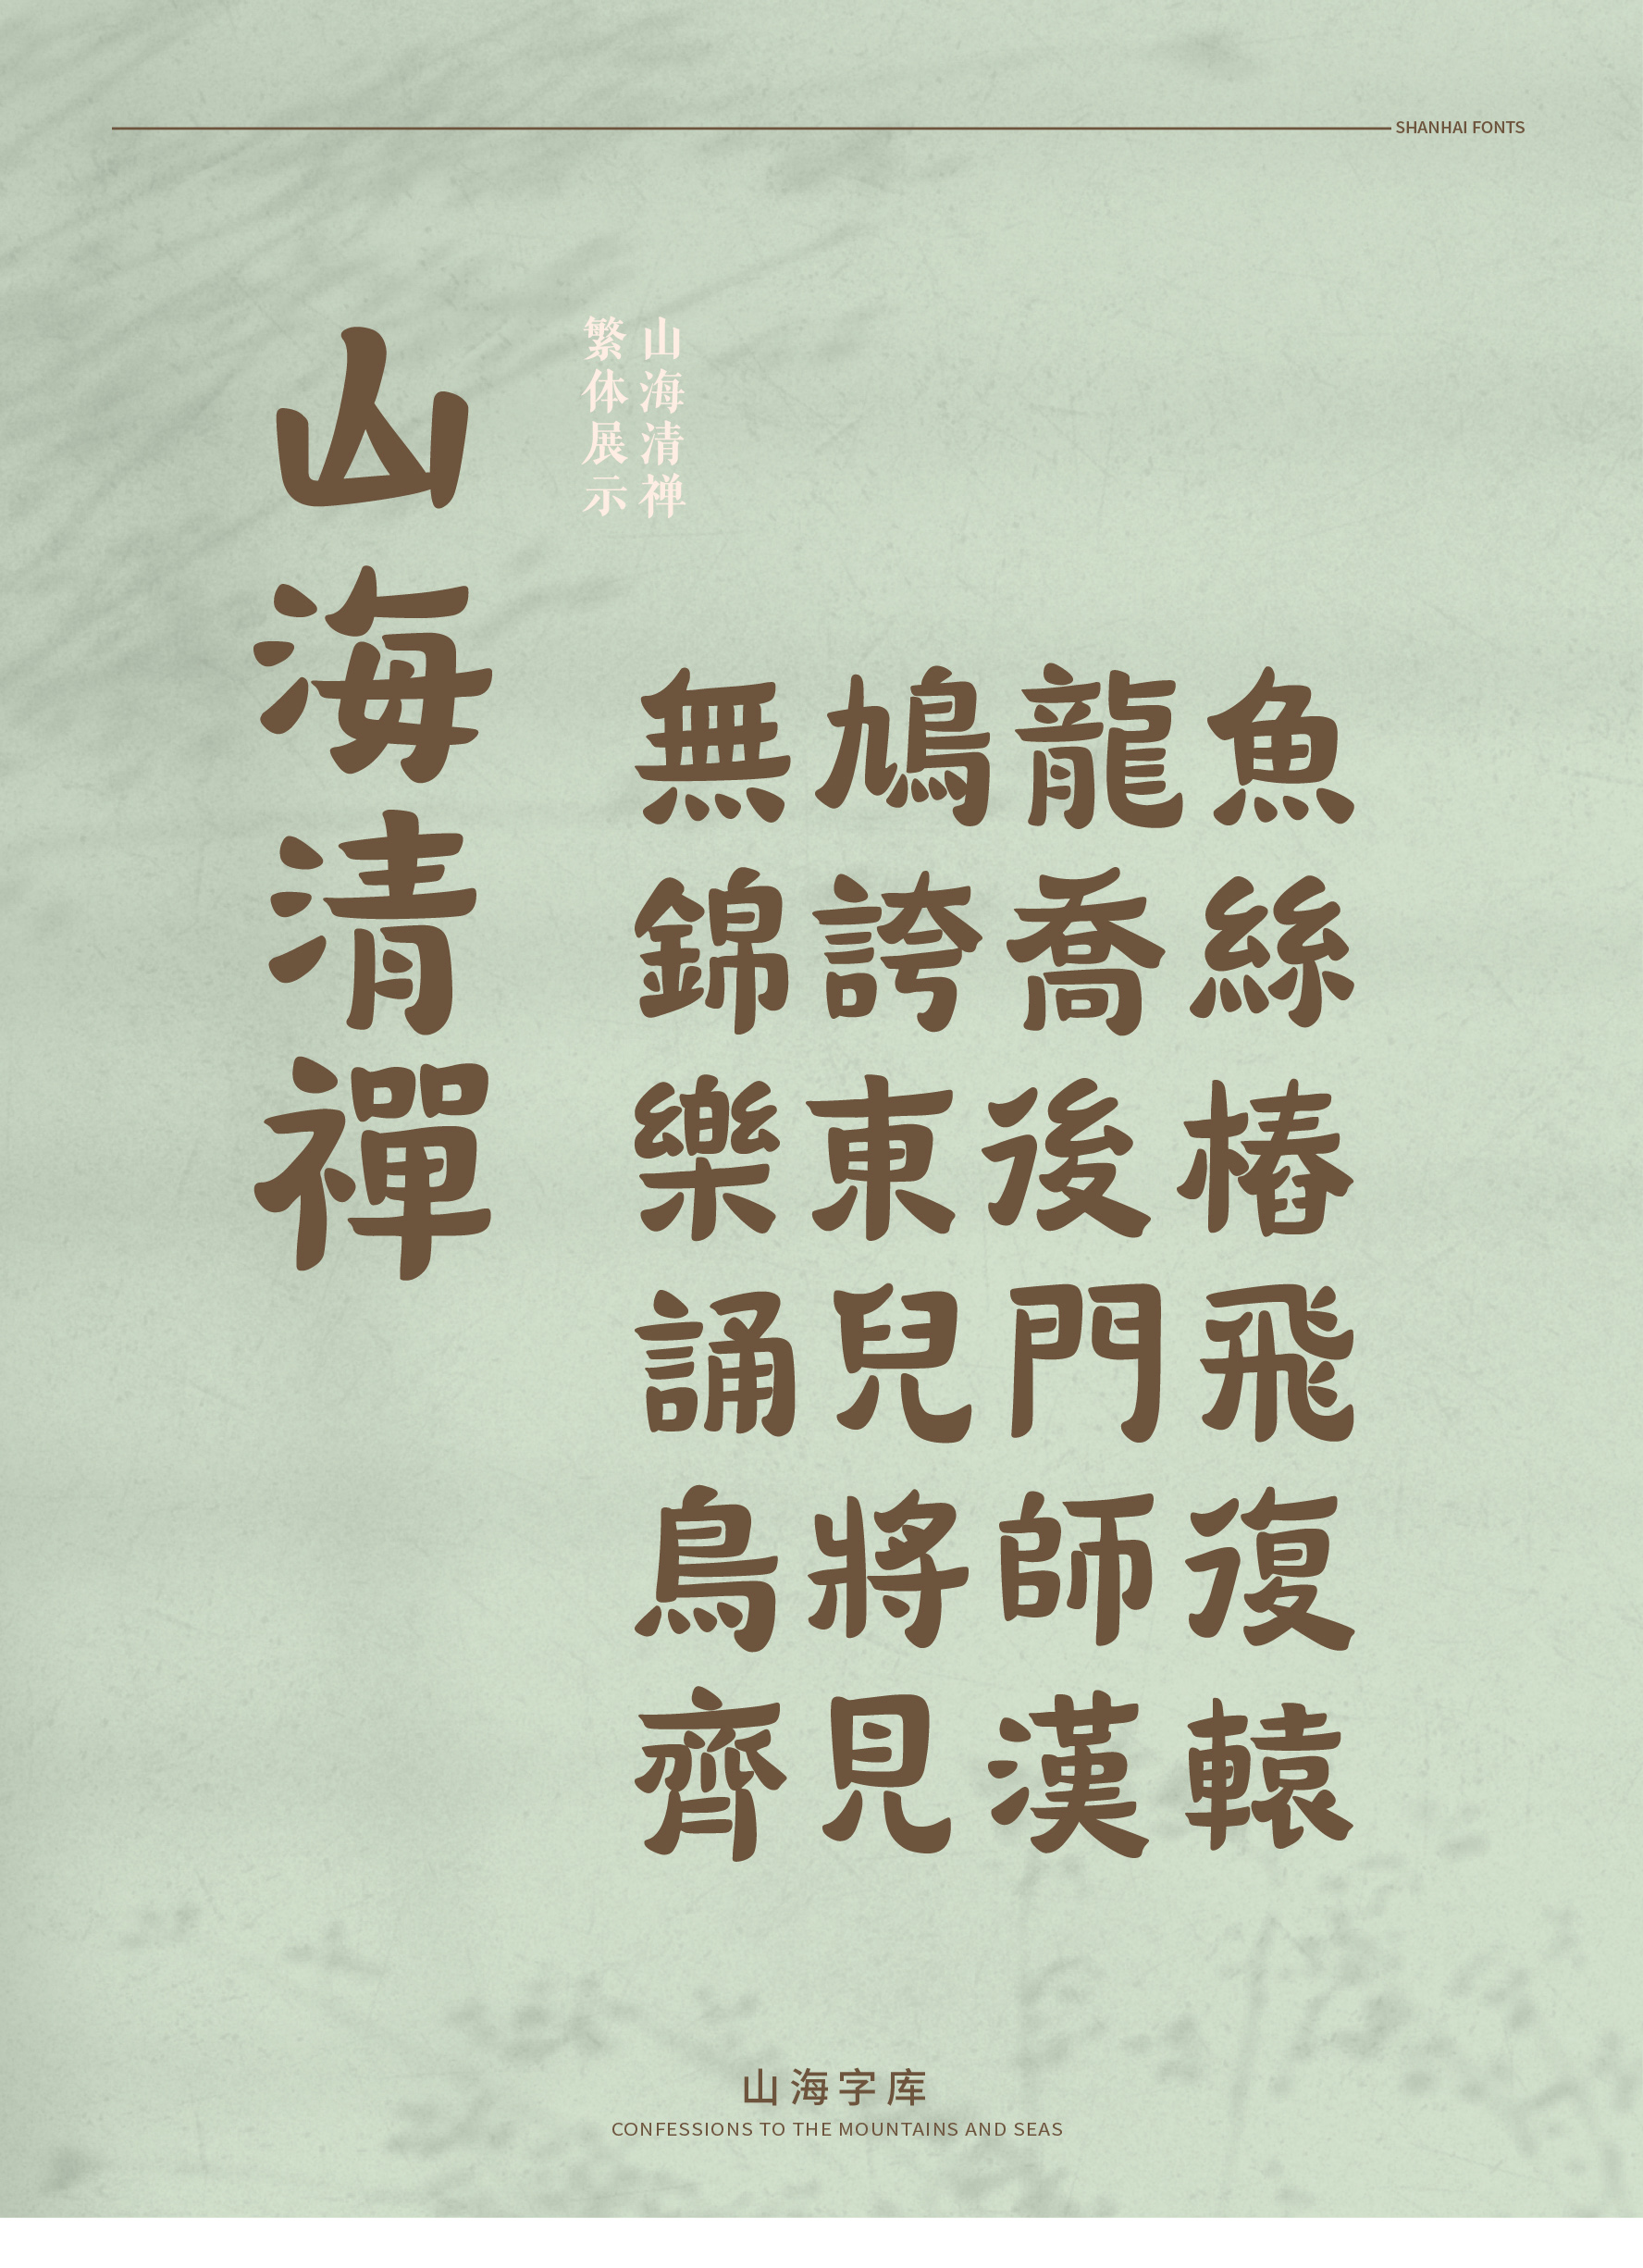 SHANHAI FONTS
山海清禪
山海清禅
繁体展示
無鳩龍魚
錦誇喬絲
樂東後樁
誦兒門飛
鳥將師復
齊見漢轅
山海字库
CONFESSIONS TO THE MOUNTAINS AND SEAS